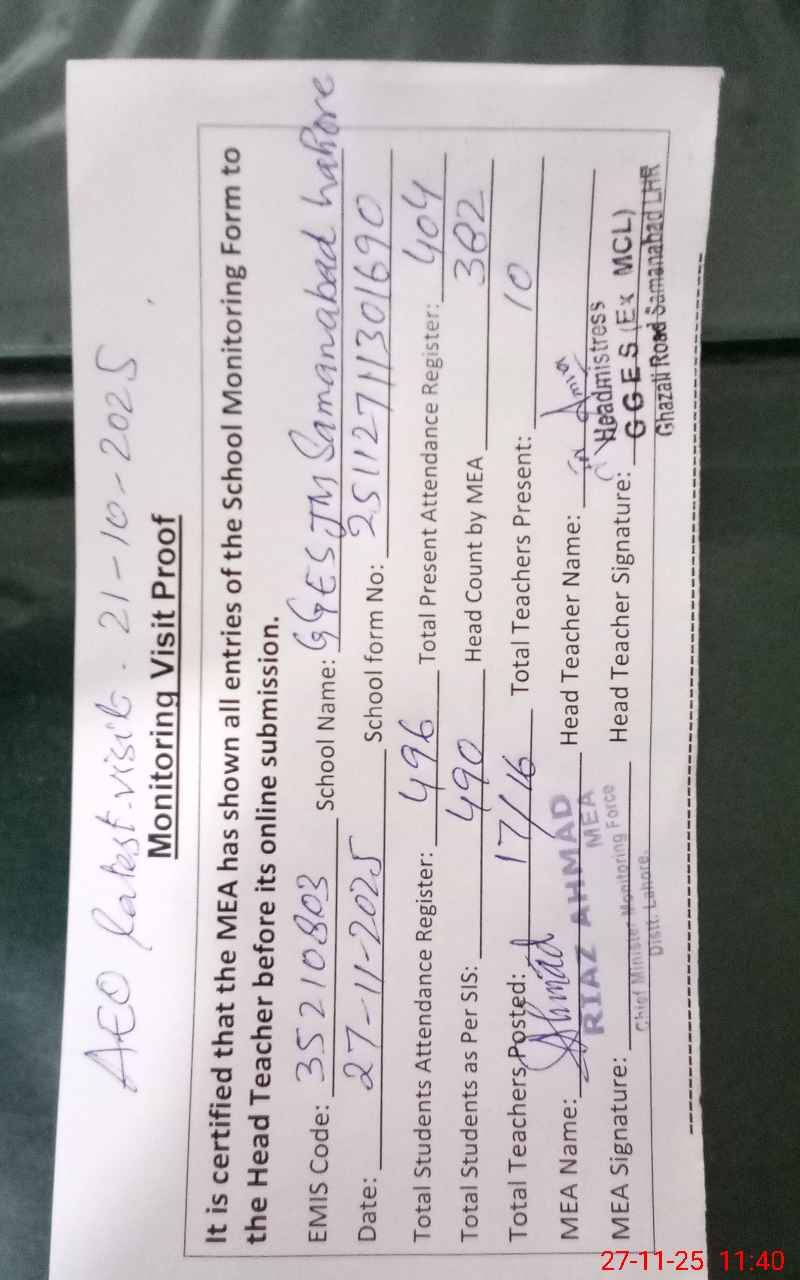 AEO latest visit. 21-10-2025
Monitoring Visit Proof
It is certified that the MEA has shown all entries of the School Monitoring Form to
the Head Teacher before its online submission.
EMIS Code: 35210803 School Name: GGES JM Samanabad Lahore
Date: 27-11-2025 School form No: 251127111301690
Total Students Attendance Register: 496 Total Present Attendance Register: 404
Total Students as Per SIS: 490 Head Count by MEA 382
Total Teachers Posted: 17/16 Total Teachers Present: 10
MEA Name: Ahmad Head Teacher Name:
RIAZ AHMAD
MEA
Headmistress
MEA Signature: Head Teacher Signature:
Chief Minister Monitoring Force
Distt. Lahore.
GGES (Ex MCL)
Ghazali Road Samanabad LHR
27-11-25 11:40